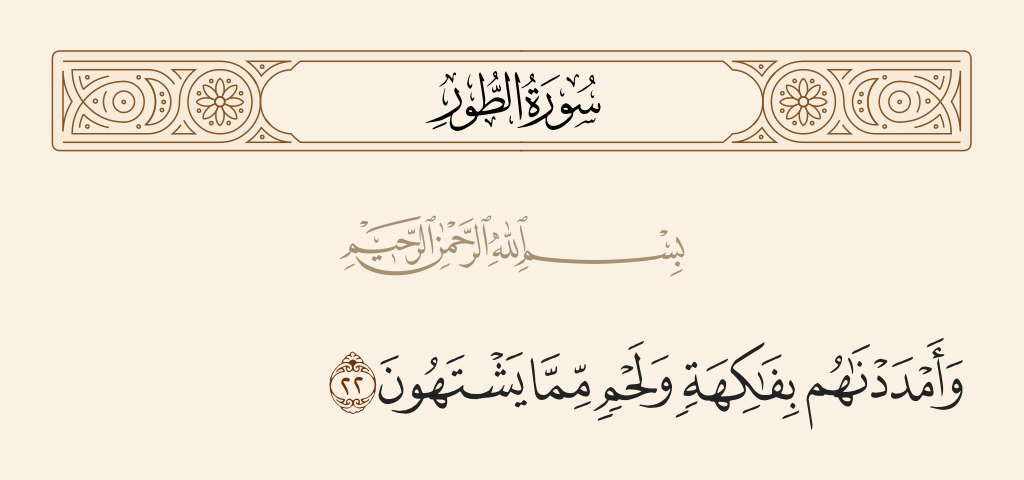 سُورَةُ الطُّورِ
بِسْمِ ٱللَّهِ ٱلرَّحْمَٰنِ ٱلرَّحِيمِ
وَأَمْدَدْنَٰهُم بِفَٰكِهَةٍ وَلَحْمٍ مِّمَّا يَشْتَهُونَ ٢٢